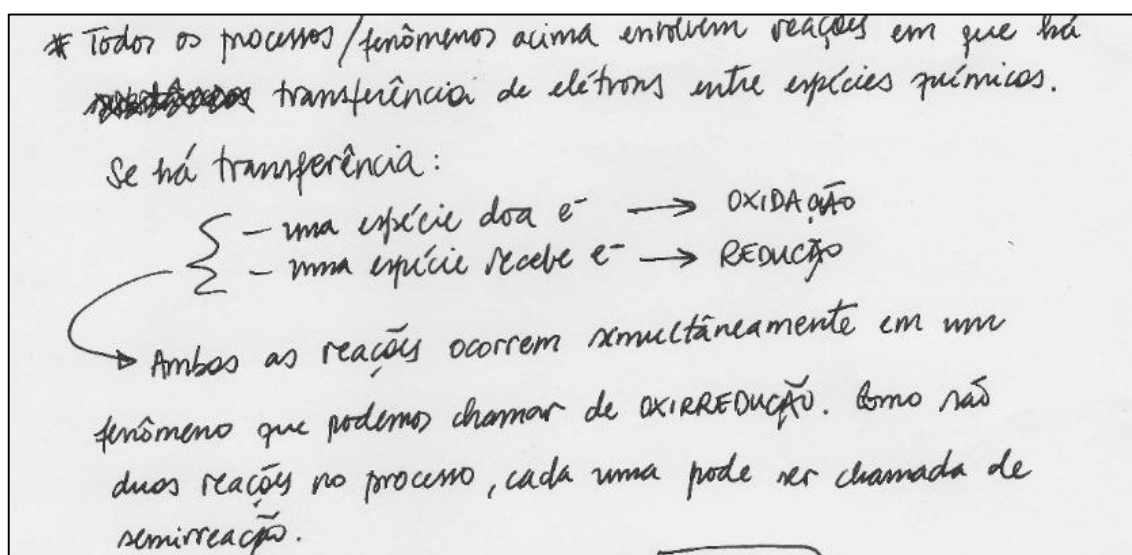 * Todos os processos/fenômenos acima envolvem reações em que há
transferência de elétrons entre espécies químicas.
Se há transferência:
- uma espécie doa e⁻ → OXIDAÇÃO
- uma espécie recebe e⁻ → REDUÇÃO
Ambas as reações ocorrem simultâneamente em um
fenômeno que podemos chamar de OXIRREDUÇÃO. Como são
duas reações no processo, cada uma pode ser chamada de
semirreação.